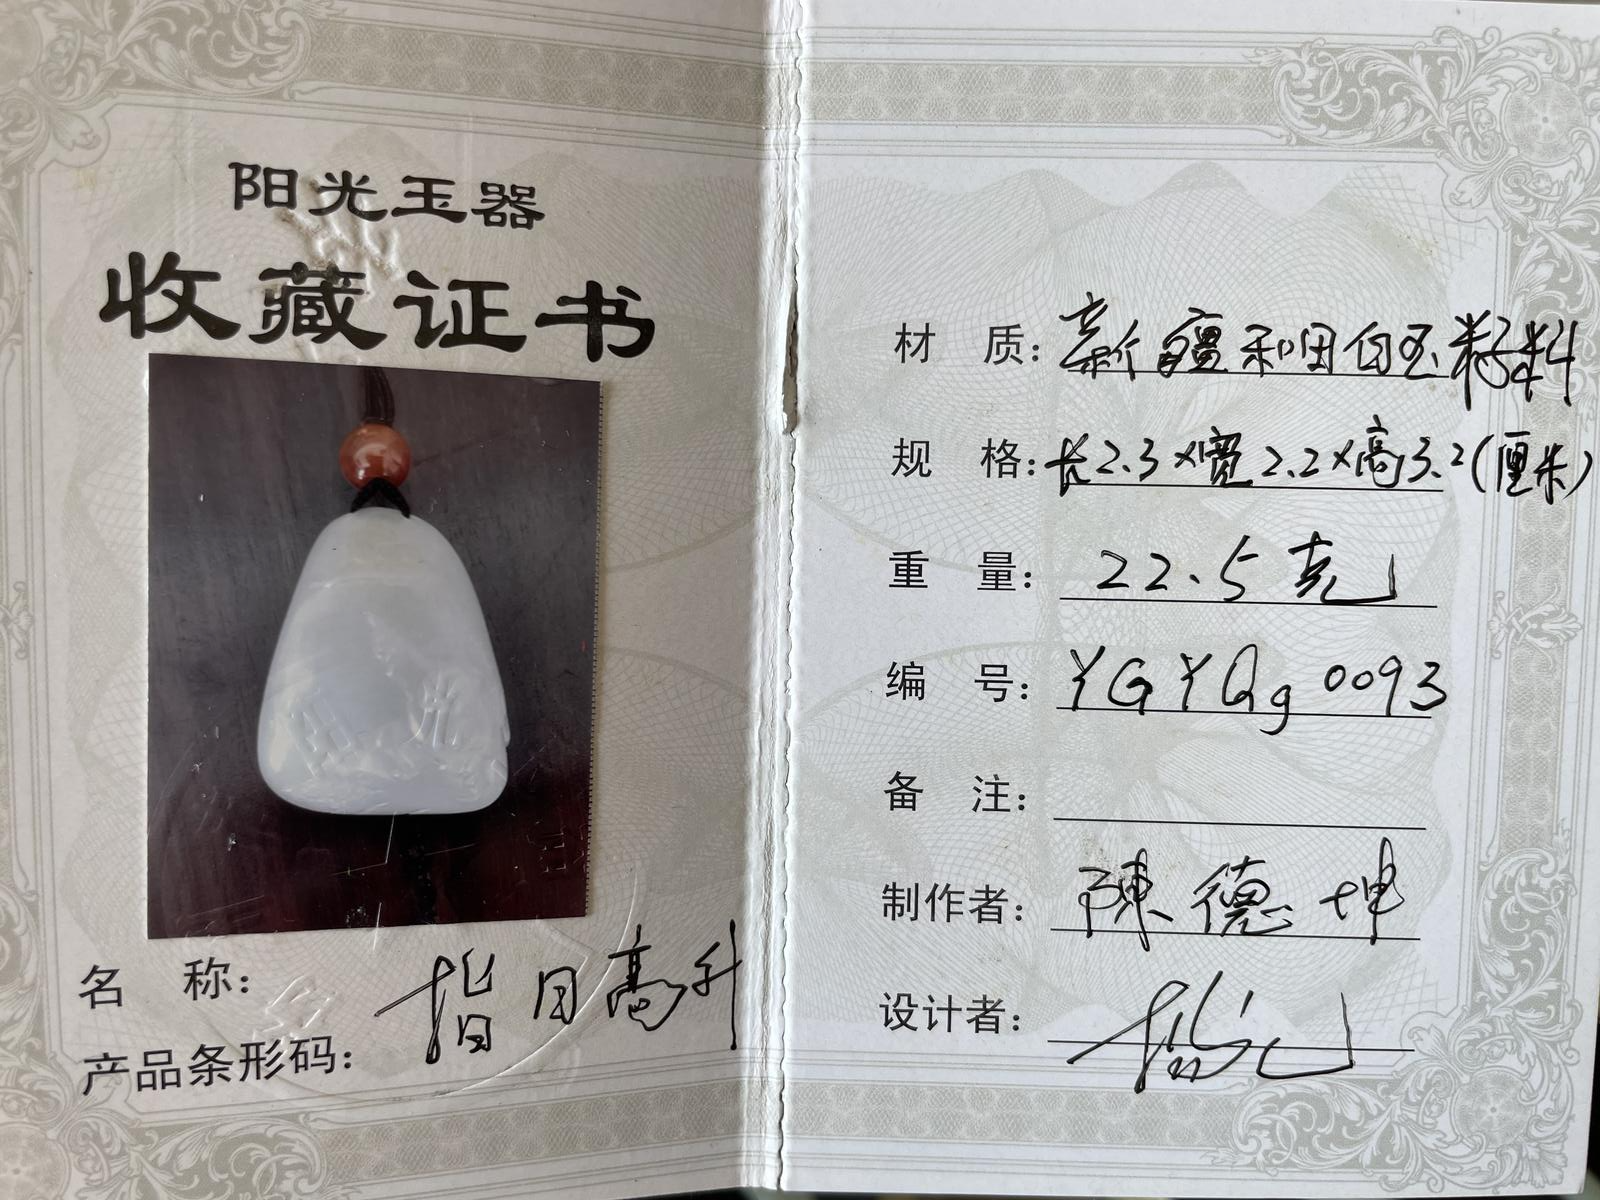 阳光玉器
收藏证书
名 称：指日高升
产品条形码：
材 质：新疆和田白玉籽料
规 格：长2.3×宽2.2×高3.2(厘米)
重 量：22.5克
编 号：YGYQg0093
备 注：
制作者：陳德坤
设计者：